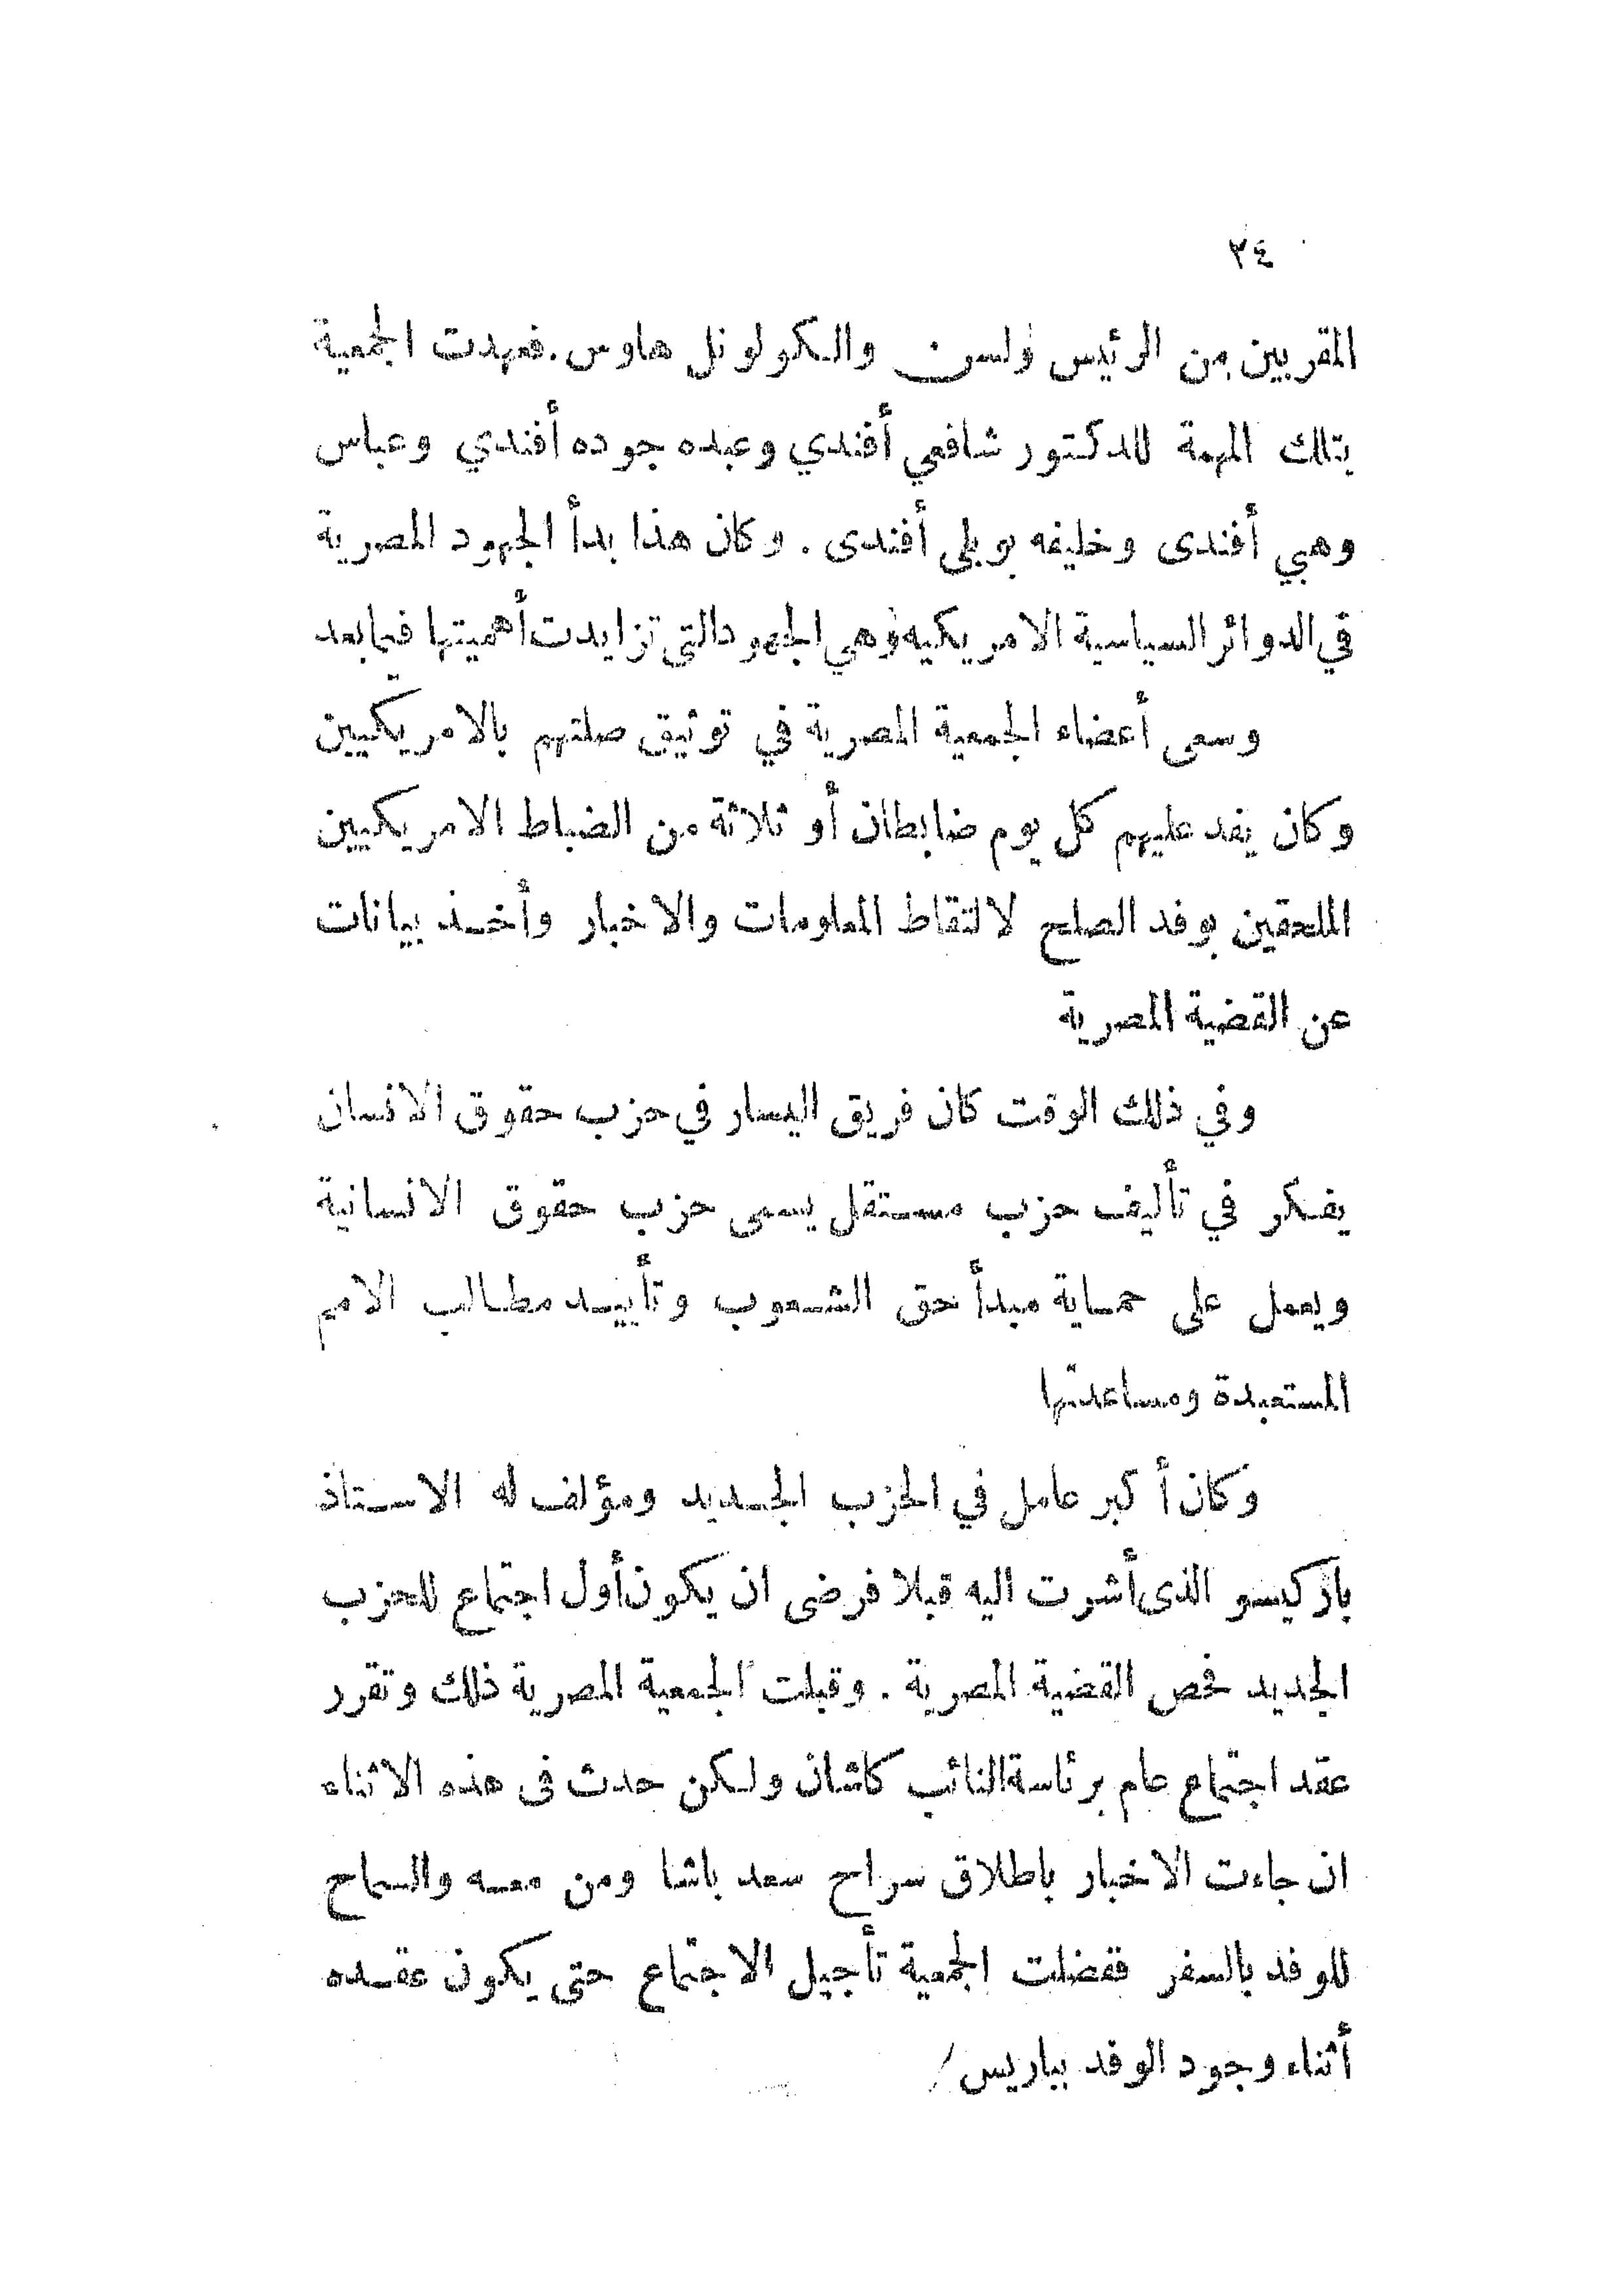 ٣٤
المقربين من الرئيس ولسن والكولونل هاوس. فعهدت الجمعية
بتلك المهمة للدكتور شافعي أفندي وعبده جوده أفندي وعباس
وهبي أفندى وخليفه بوبلى أفندى . وكان هذا بدأ الجهود المصرية
في الدوائر السياسية الامريكيه وهي الجهود التى تزايدت أهميتها فيما بعد
وسعى أعضاء الجمعية المصرية في توثيق صلتهم بالامريكيين
وكان يفد عليهم كل يوم ضابطان أو ثلاثة من الضباط الامريكيين
الملحقين بوفد الصلح لالتقاط المعلومات والاخبار وأخذ بيانات
عن القضية المصرية
وفي ذلك الوقت كان فريق اليسار في حزب حقوق الانسان
يفكر في تأليف حزب مستقل يسمى حزب حقوق الانسانية
ويعمل على حماية مبدأ حق الشعوب وتأييد مطالب الامم
المستعبدة ومساعدتها
وكان أكبر عامل في الحزب الجديد ومؤلف له الاستاذ
باركيسو الذى أشرت اليه قبلا فرضى ان يكون أول اجتماع للحزب
الجديد فحص القضية المصرية . وقبلت الجمعية المصرية ذلك وتقرر
عقد اجتماع عام برئاسة النائب كاشان ولكن حدث فى هذه الاثناء
ان جاءت الاخبار باطلاق سراح سعد باشا ومن معه والسماح
للوفد بالسفر ففضلت الجمعية تأجيل الاجتماع حتى يكون عقده
أثناء وجود الوفد بباريس